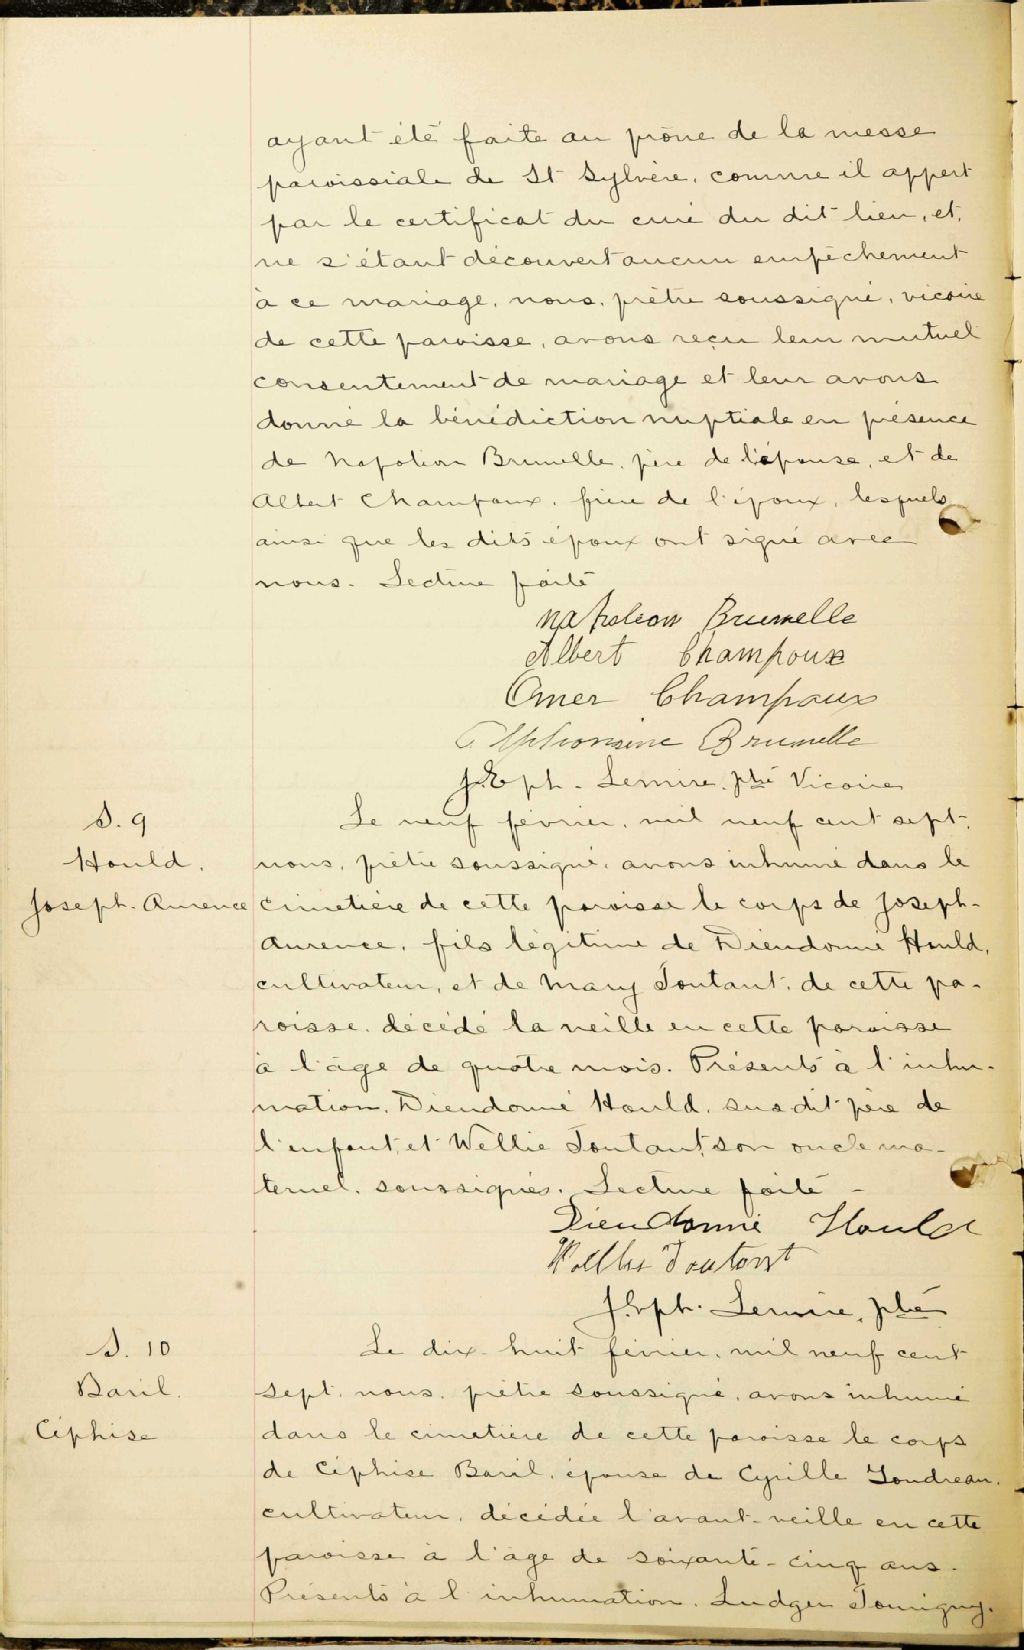 ayant été faite au prône de la messe
paroissiale de St Sylvère, comme il appert
par le certificat du curé du dit lieu, et,
ne s'étant découvert aucun empêchement
à ce mariage, nous, prêtre soussigné, vicaire
de cette paroisse, avons reçu leur mutuel
consentement de mariage et leur avons
donné la bénédiction nuptiale en présence
de Napoléon Brunelle, père de l'épouse, et de
Albert Champoux, frère de l'époux, lesquels
ainsi que les dits époux ont signé avec
nous. Lecture faite
Napoleon Brunelle
Albert Champoux
Omer Champoux
Alphonsine Brunelle
J. Eph. Lemire, ptre Vicaire
S. 9
Hould,
Joseph-Aurence
Le neuf février, mil neuf cent sept,
nous, prêtre soussigné, avons inhumé dans le
cimetière de cette paroisse le corps de Joseph-
Aurence, fils légitime de Dieudonné Hould,
cultivateur, et de Mary Toutant, de cette pa-
roisse, décédé la veille en cette paroisse
à l'âge de quatre mois. Présents à l'inhu-
mation, Dieudonné Hould, susdit père de
l'enfant, et Wellie Toutant, son oncle ma-
ternel, soussignés. Lecture faite -
Dieudonné Hould
Wellie Toutant
J. Eph. Lemire, ptre
S. 10
Baril,
Céphise
Le dix-huit février, mil neuf cent
sept, nous, prêtre soussigné, avons inhumé
dans le cimetière de cette paroisse le corps
de Céphise Baril, épouse de Cyrille Goudreau,
cultivateur, décédée l'avant-veille en cette
paroisse à l'âge de soixante-cinq ans.
Présents à l'inhumation, Ludger Tourigny,